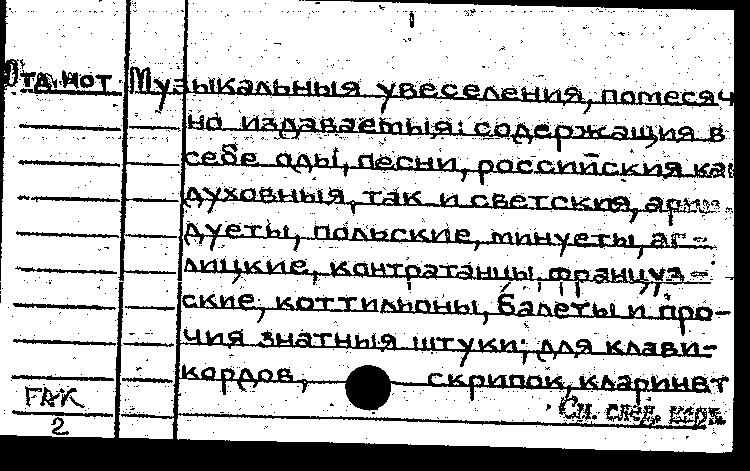 Отд. нот Музыкальныя увеселения, помесяч
но издаваемыя: содержащия в
себе оды, песни, российския как
духовныя, так и светския, арии
дуеты, польские, минуеты, аг-
лицкие, контратанцы, француз-
ские, коттильоны, балеты и про-
чия знатныя штуки; для клави-
кордов, скрипок, кларинет
FAK
2
См. след. карт.